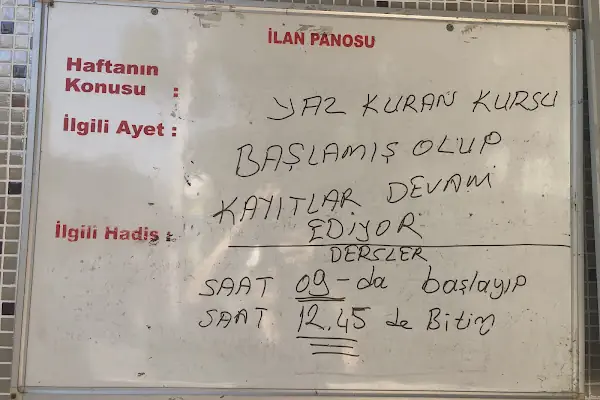 İLAN PANOSU
Haftanın
Konusu :
YAZ KURAN KURSU
İlgili Ayet :
BAŞLAMIŞ OLUP
KAYITLAR DEVAM
EDİYOR
İlgili Hadis :
DERSLER
SAAT 09-da başlayıp
SAAT 12.45 de Bitiy